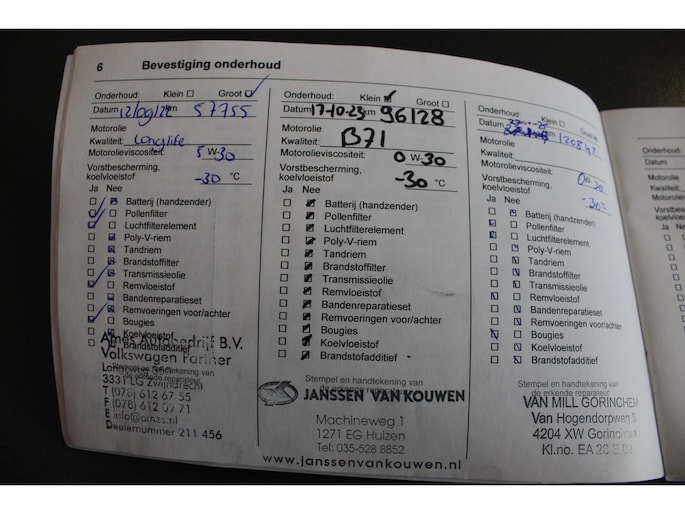 6 Bevestiging onderhoud
Onderhoud: Klein Groot
Datum 12/09/22 km 57755
Motorolie
Kwaliteit: Longlife
Motorolieviscositeit: 5 W-30
Vorstbescherming,
koelvloeistof -30 °C
Ja Nee
Batterij (handzender)
Pollenfilter
Luchtfilterelement
Poly-V-riem
Tandriem
Brandstoffilter
Transmissieolie
Remvloeistof
Bandenreparatieset
Remvoeringen voor/achter
Bougies
Koelvloeistof
Brandstofadditief
Stempel en handtekening van
de erkende reparateur
Ames Autobedrijf B.V.
Volkswagen Partner
Langeweg 350
3331 LG Zwijndrecht
T (078) 612 67 55
F (078) 612 07 71
E info@ames.nl
Dealernummer 211 456
Onderhoud: Klein Groot
Datum 17-10-23 km 96128
Motorolie
Kwaliteit: B71
Motorolieviscositeit: 0 W-30
Vorstbescherming,
koelvloeistof -30 °C
Ja Nee
Batterij (handzender)
Pollenfilter
Luchtfilterelement
Poly-V-riem
Tandriem
Brandstoffilter
Transmissieolie
Remvloeistof
Bandenreparatieset
Remvoeringen voor/achter
Bougies
Koelvloeistof
Brandstofadditief
Stempel en handtekening van
de erkende reparateur
JANSSEN VAN KOUWEN
Machineweg 1
1271 EG Huizen
Tel: 035-528 8852
www.janssenvankouwen.nl
Onderhoud: Klein Groot
Datum km
Motorolie
Kwaliteit:
Motorolieviscositeit: 0W-30
Vorstbescherming,
koelvloeistof -30°C
Ja Nee
Batterij (handzender)
Pollenfilter
Luchtfilterelement
Poly-V-riem
Tandriem
Brandstoffilter
Transmissieolie
Remvloeistof
Bandenreparatieset
Remvoeringen voor/achter
Bougies
Koelvloeistof
Brandstofadditief
Stempel en handtekening van
de erkende reparateur
VAN MILL GORINCHEM
Van Hogendorpweg
4204 XW Gorinchem
Kl.no. EA
Onderhoud
Datum
Motorolie
Kwaliteit:
Ja Nee